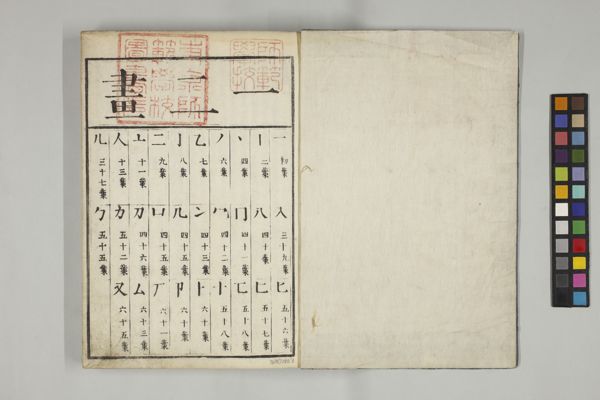 一二畫
一 初葉 入 三十九葉 匕 五十六葉
丨 二葉 八 四十葉 匚 五十七葉
丶 四葉 冂 四十一葉 匸 五十八葉
丿 六葉 冖 四十二葉 十 五十八葉
乙 七葉 冫 四十三葉 卜 六十葉
亅 八葉 几 四十五葉 卩 六十葉
二 九葉 凵 四十五葉 厂 六十一葉
亠 十一葉 刀 四十六葉 厶 六十三葉
人 十三葉 力 五十二葉 又 六十五葉
儿 三十七葉 勹 五十五葉